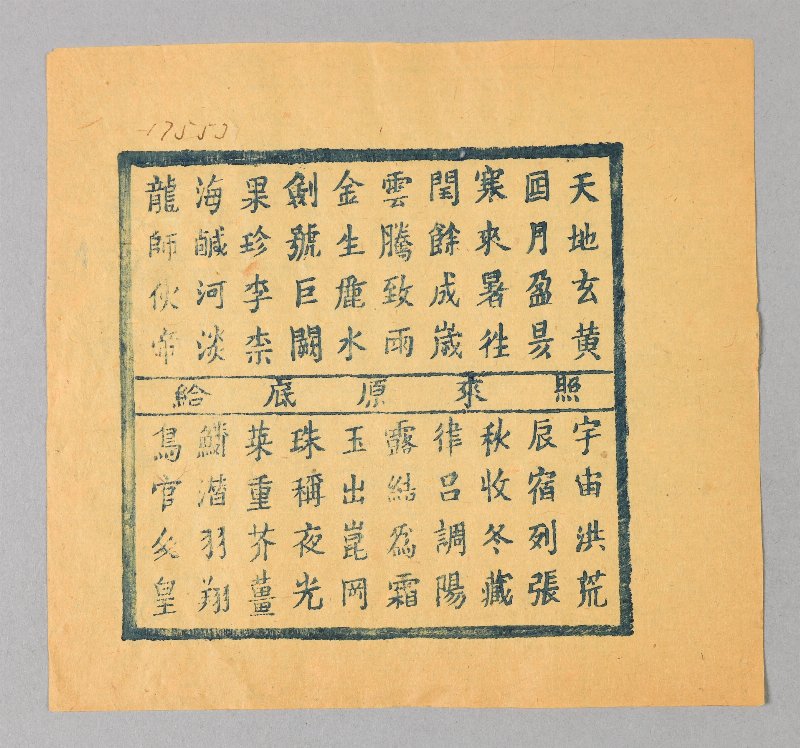 天地玄黄
囸月盈昃
寒來暑徃
閏餘成歲
雲騰致雨
金生麗水
劍號巨闕
果珍李柰
海鹹河淡
龍師伙帝
照來原底給
宇宙洪荒
辰宿列張
秋收冬藏
律吕調陽
露結爲霜
玉出崑岡
珠稱夜光
菜重芥薑
鱗潛羽翔
鳥官皇